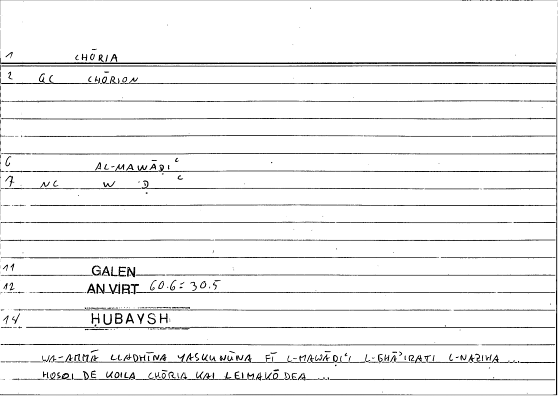 1 CHŌRIA
2 GC CHŌRION
6 AL-MAWĀḌIʿ
7 NC W Ḍ ʿ
11 GALEN
12 AN VIRT 60.6 = 30.5
14 ḤUBAYSH
WA-AMMĀ LLADHĪNA YASKUNŪNA FĪ L-MAWĀḌIʿI L-GHĀʾIRATI L-NAZIHA ...
HOSOI DE KOILA CHŌRIA KAI LEIMAKŌDEA ...